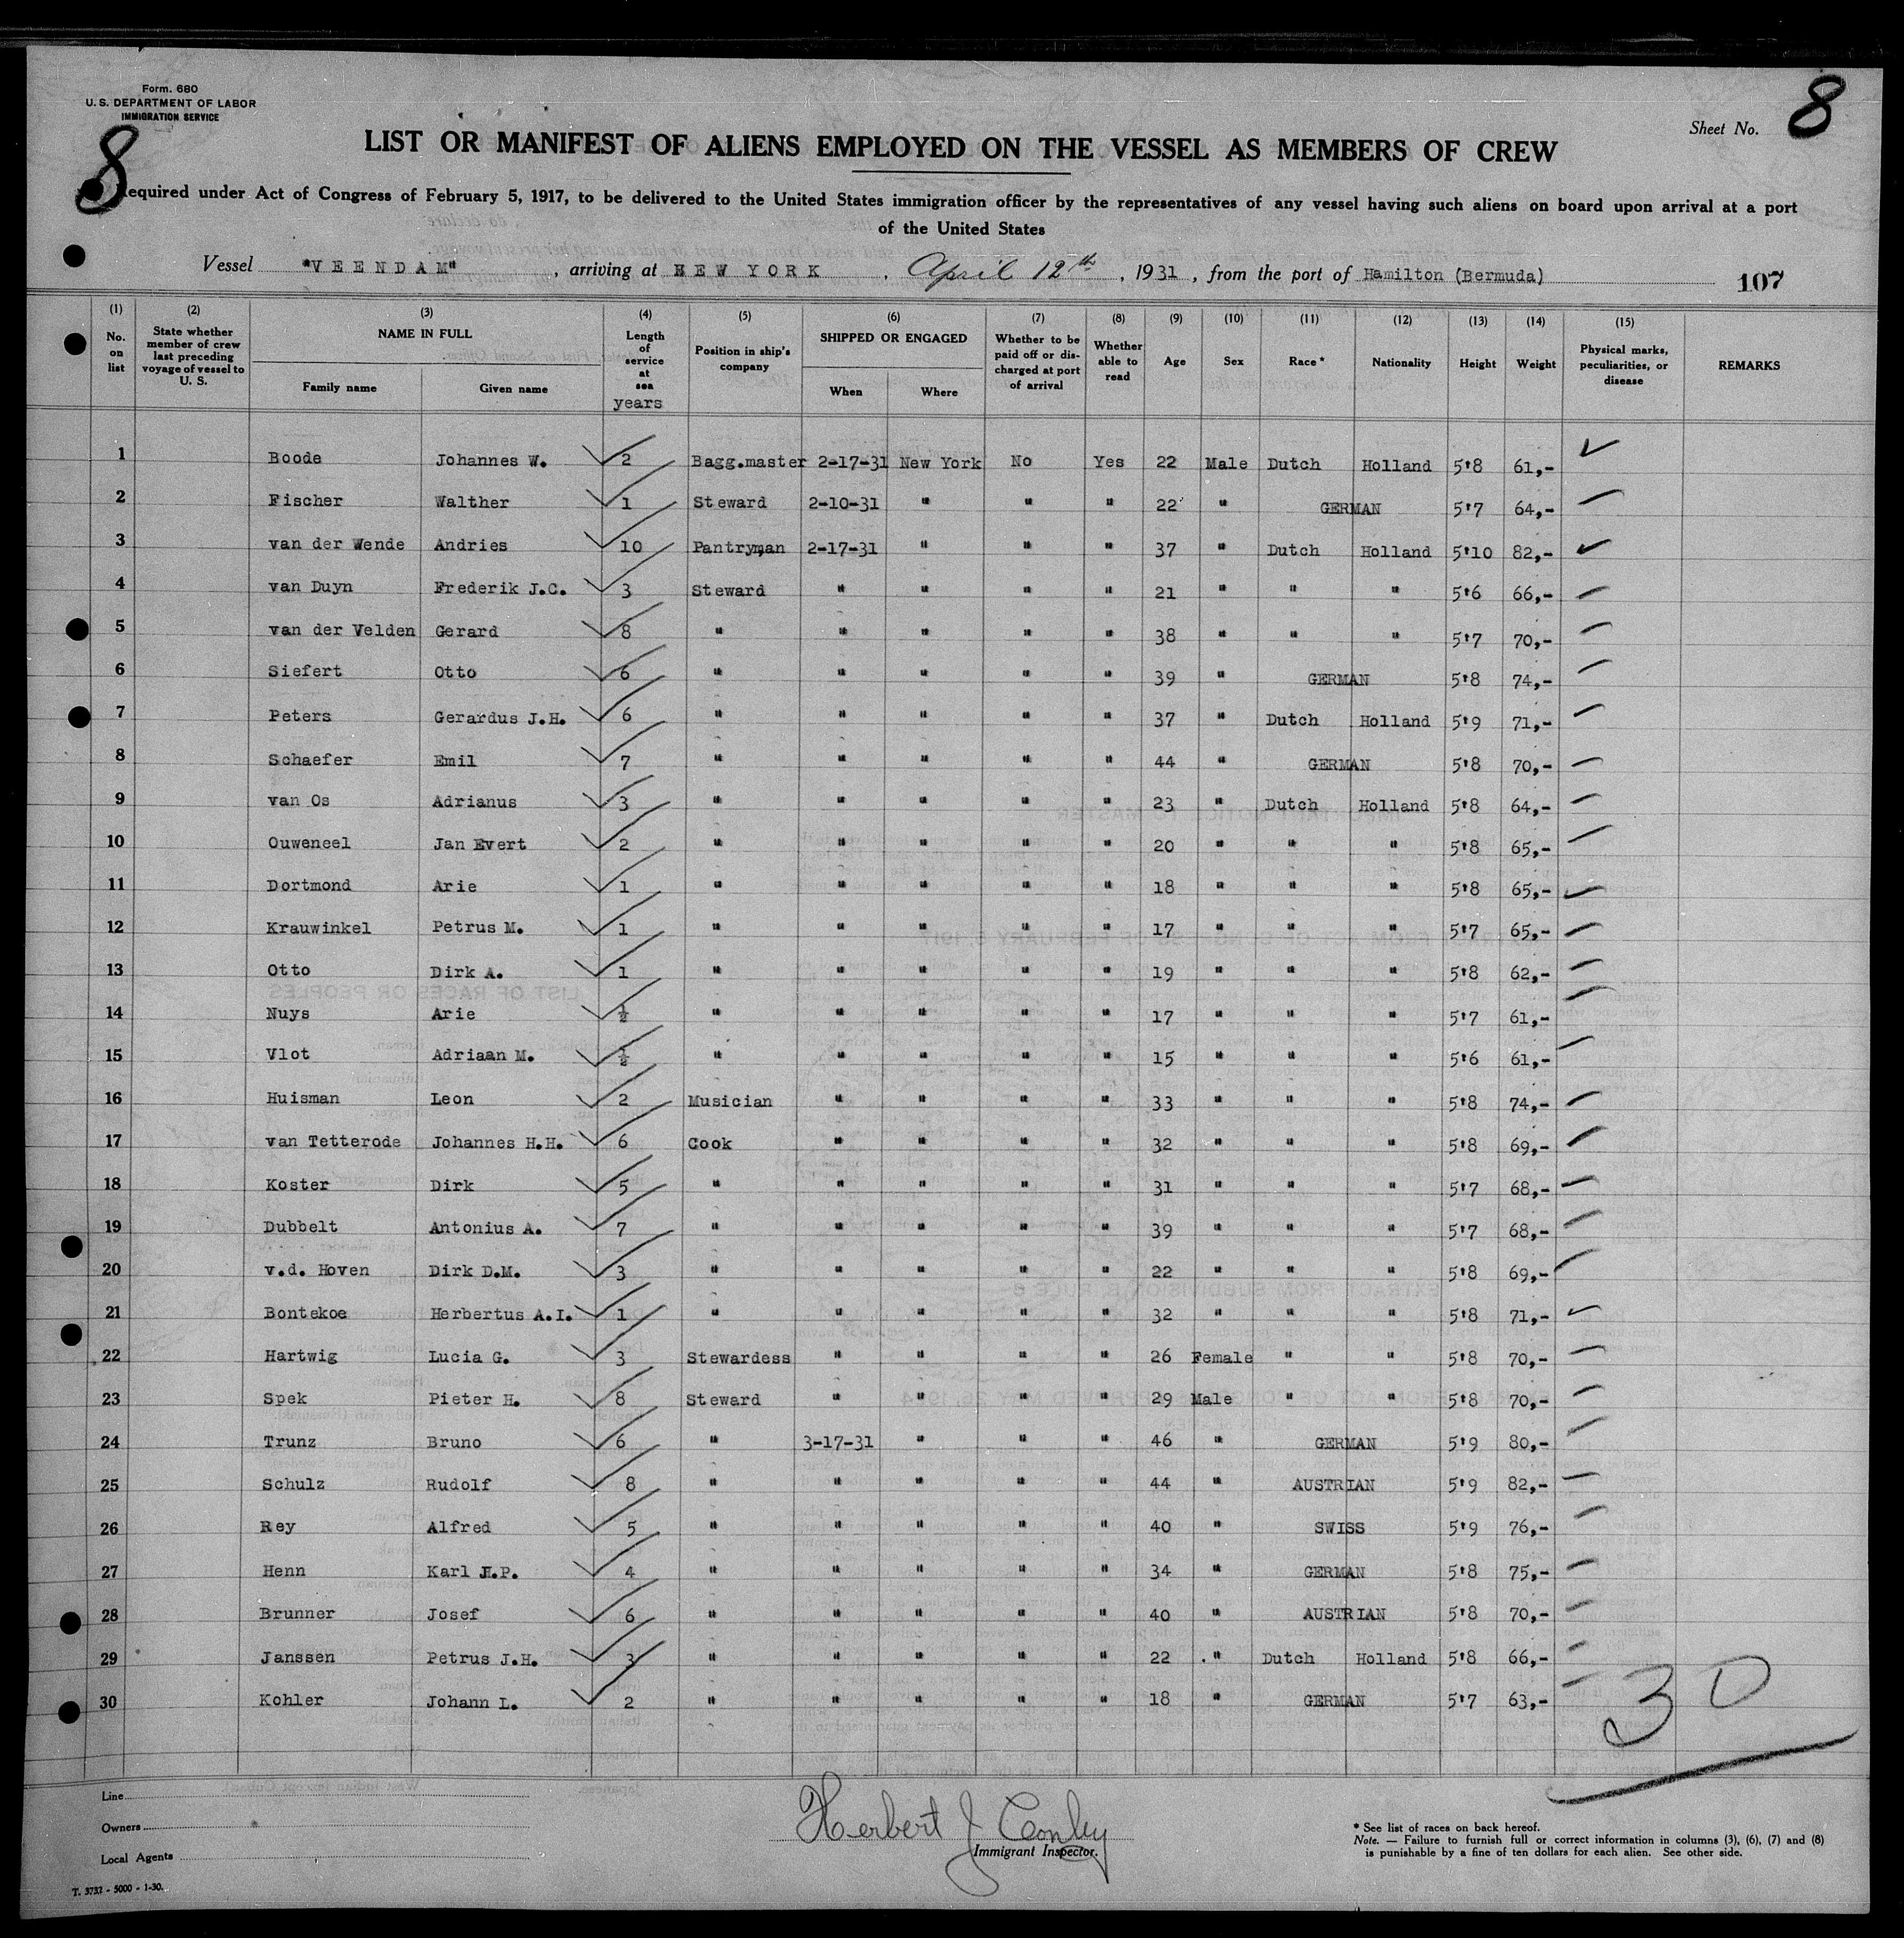 Form. 680
U. S. DEPARTMENT OF LABOR
IMMIGRATION SERVICE
8
Sheet No. 8
LIST OR MANIFEST OF ALIENS EMPLOYED ON THE VESSEL AS MEMBERS OF CREW
Required under Act of Congress of February 5, 1917, to be delivered to the United States immigration officer by the representatives of any vessel having such aliens on board upon arrival at a port
of the United States
Vessel "VEENDAM", arriving at NEW YORK, April 12th, 1931, from the port of Hamilton (Bermuda) 107
(1) No. on list (2) State whether member of crew last preceding voyage of vessel to U. S. (3) NAME IN FULL Family name Given name (4) Length of service at sea years (5) Position in ship's company (6) SHIPPED OR ENGAGED When Where (7) Whether to be paid off or discharged at port of arrival (8) Whether able to read (9) Age (10) Sex (11) Race * (12) Nationality (13) Height (14) Weight (15) Physical marks, peculiarities, or disease REMARKS
1 Boode Johannes W. 2 Bagg.master 2-17-31 New York No Yes 22 Male Dutch Holland 5'8 61,-
2 Fischer Walther 1 Steward 2-10-31 " " " 22 " GERMAN 5'7 64,-
3 van der Wende Andries 10 Pantryman 2-17-31 " " " 37 " Dutch Holland 5'10 82,-
4 van Duyn Frederik J.C. 3 Steward " " " " 21 " " " 5'6 66,-
5 van der Velden Gerard 8 " " " " " 38 " " " 5'7 70,-
6 Siefert Otto 6 " " " " " 39 " GERMAN 5'8 74,-
7 Peters Gerardus J.H. 6 " " " " " 37 " Dutch Holland 5'9 71,-
8 Schaefer Emil 7 " " " " " 44 " GERMAN 5'8 70,-
9 van Os Adrianus 3 " " " " " 23 " Dutch Holland 5'8 64,-
10 Ouweneel Jan Evert 2 " " " " " 20 " " " 5'8 65,-
11 Dortmond Arie 1 " " " " " 18 " " " 5'8 65,-
12 Krauwinkel Petrus M. 1 " " " " " 17 " " " 5'7 65,-
13 Otto Dirk A. 1 " " " " " 19 " " " 5'8 62,-
14 Nuys Arie ½ " " " " " 17 " " " 5'7 61,-
15 Vlot Adriaan M. ½ " " " " " 15 " " " 5'6 61,-
16 Huisman Leon 2 Musician " " " " 33 " " " 5'8 74,-
17 van Tetterode Johannes H.H. 6 Cook " " " " 32 " " " 5'8 69,-
18 Koster Dirk 5 " " " " " 31 " " " 5'7 68,-
19 Dubbelt Antonius A. 7 " " " " " 39 " " " 5'7 68,-
20 v.d. Hoven Dirk D.M. 3 " " " " " 22 " " " 5'8 69,-
21 Bontekoe Herbertus A.I. 1 " " " " " 32 " " " 5'8 71,-
22 Hartwig Lucia G. 3 Stewardess " " " " 26 Female " " 5'8 70,-
23 Spek Pieter H. 8 Steward " " " " 29 Male " " 5'8 70,-
24 Trunz Bruno 6 " 3-17-31 " " " 46 " GERMAN 5'9 80,-
25 Schulz Rudolf 8 " " " " " 44 " AUSTRIAN 5'9 82,-
26 Rey Alfred 5 " " " " " 40 " SWISS 5'9 76,-
27 Henn Karl H.P. 4 " " " " " 34 " GERMAN 5'8 75,-
28 Brunner Josef 6 " " " " " 40 " AUSTRIAN 5'8 70,-
29 Janssen Petrus J.H. 3 " " " " " 22 " Dutch Holland 5'8 66,-
30 Kohler Johann L. 2 " " " " " 18 " GERMAN 5'7 63,-
30
Line
Owners
Local Agents
Herbert J Conley
Immigrant Inspector.
* See list of races on back hereof.
Note. — Failure to furnish full or correct information in columns (3), (6), (7) and (8)
is punishable by a fine of ten dollars for each alien. See other side.
T. 3732 - 5000 - 1-30.